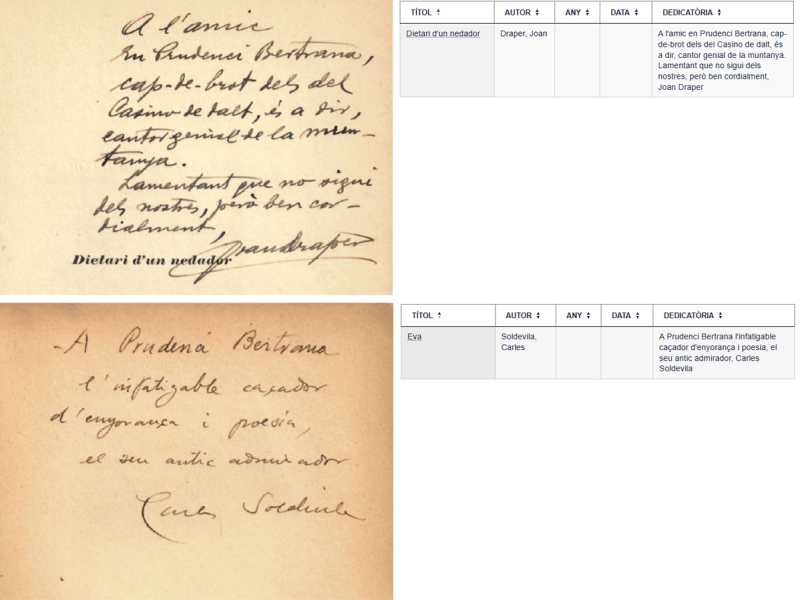 A l'amic
En Prudenci Bertrana,
cap-de-brot dels del
Casino de dalt, és a dir,
cantor genial de la mun-
tanya.
Lamentant que no sigui
dels nostres, però ben cor-
dialment,
Joan Draper
Dietari d'un nedador
TÍTOL AUTOR ANY DATA DEDICATÒRIA
Dietari d'un nedador Draper, Joan A l'amic en Prudenci Bertrana, cap-
de-brot dels del Casino de dalt, és
a dir, cantor genial de la muntanya.
Lamentant que no sigui dels
nostres, però ben cordialment,
Joan Draper
A Prudenci Bertrana
l'infatigable caçador
d'enyorança i poesia,
el seu antic admirador
Carles Soldevila
TÍTOL AUTOR ANY DATA DEDICATÒRIA
Eva Soldevila, A Prudenci Bertrana l'infatigable
Carles caçador d'enyorança i poesia, el
seu antic admirador, Carles
Soldevila